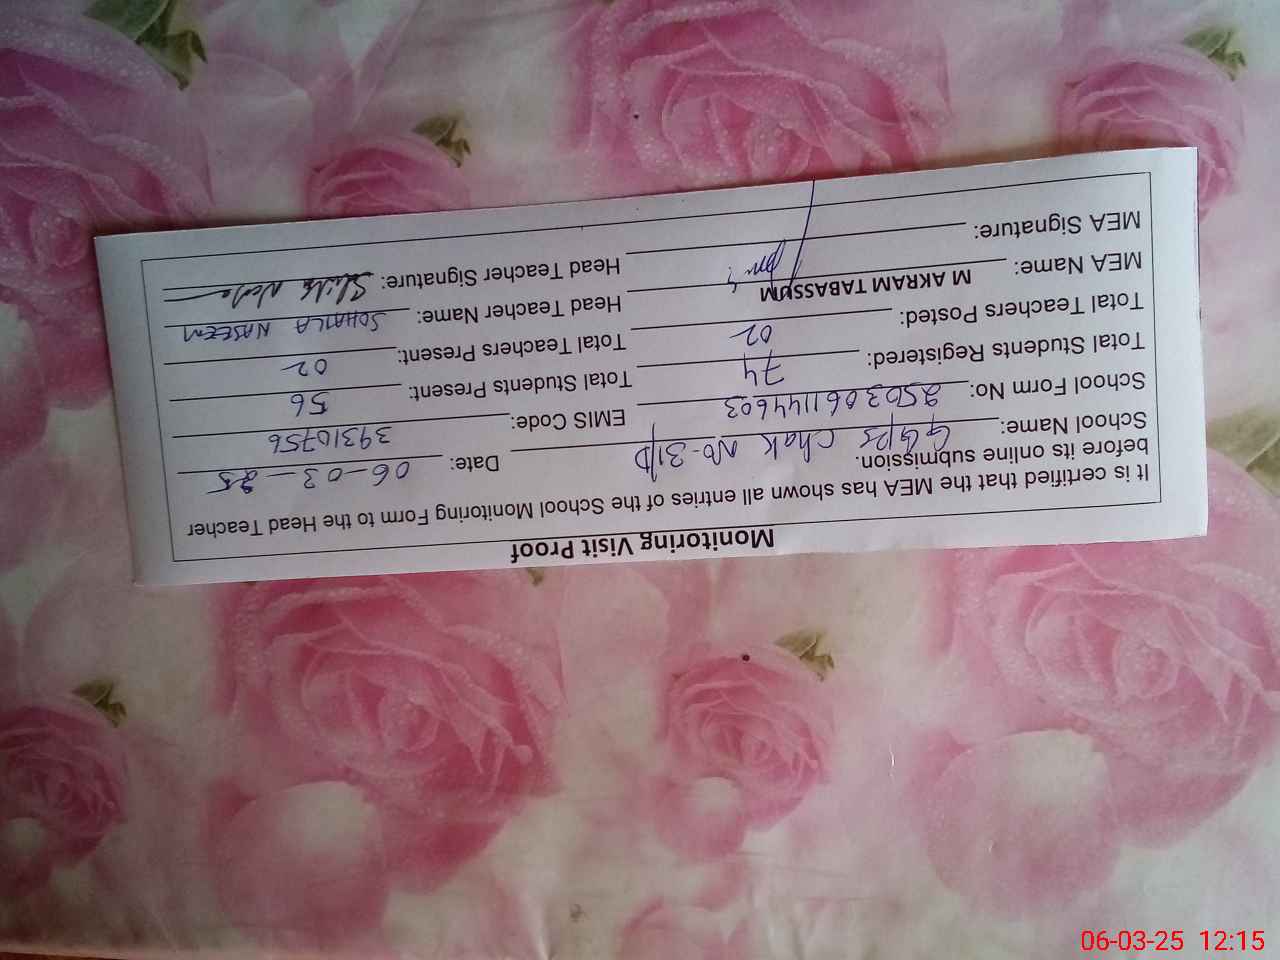 Monitoring Visit Proof
It is certified that the MEA has shown all entries of the School Monitoring Form to the Head Teacher
before its online submission.
School Name: GGPS Chak No-31/D Date: 06-03-25
School Form No: 250306114603 EMIS Code: 39310756
Total Students Registered: 74 Total Students Present: 56
Total Teachers Posted: 02 Total Teachers Present: 02
MEA Name: M AKRAM TABASSUM Head Teacher Name: SOHAILA NASEEM
MEA Signature: Head Teacher Signature:
06-03-25 12:15